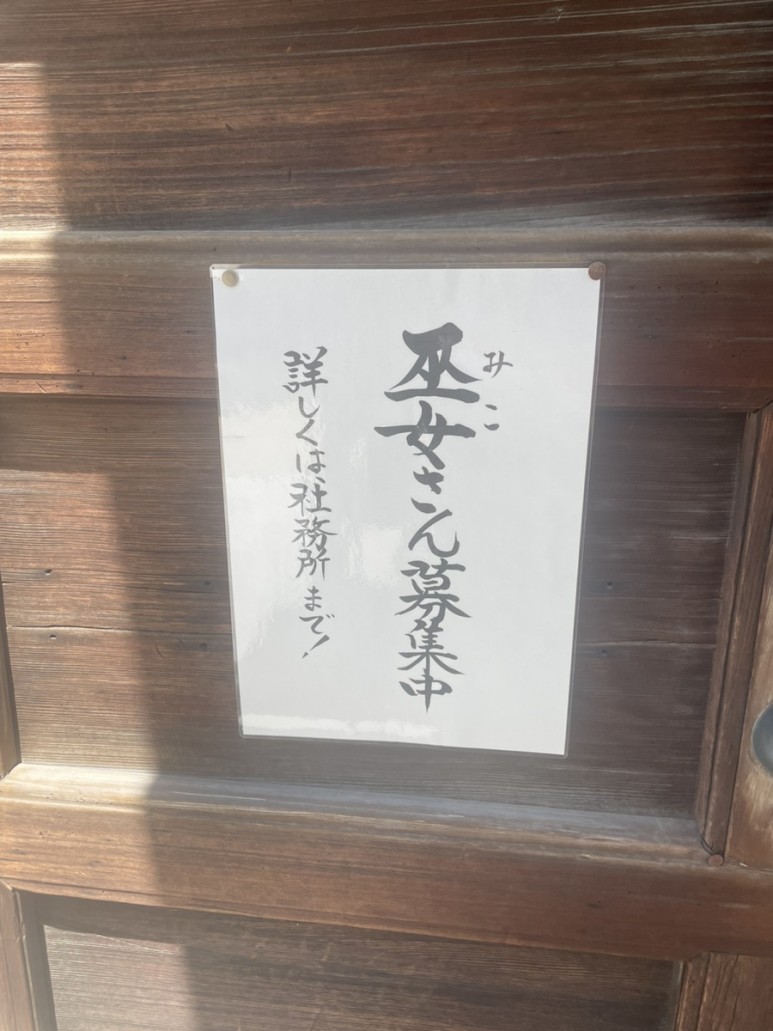 巫女さん募集中
みこ
詳しくは、社務所まで!